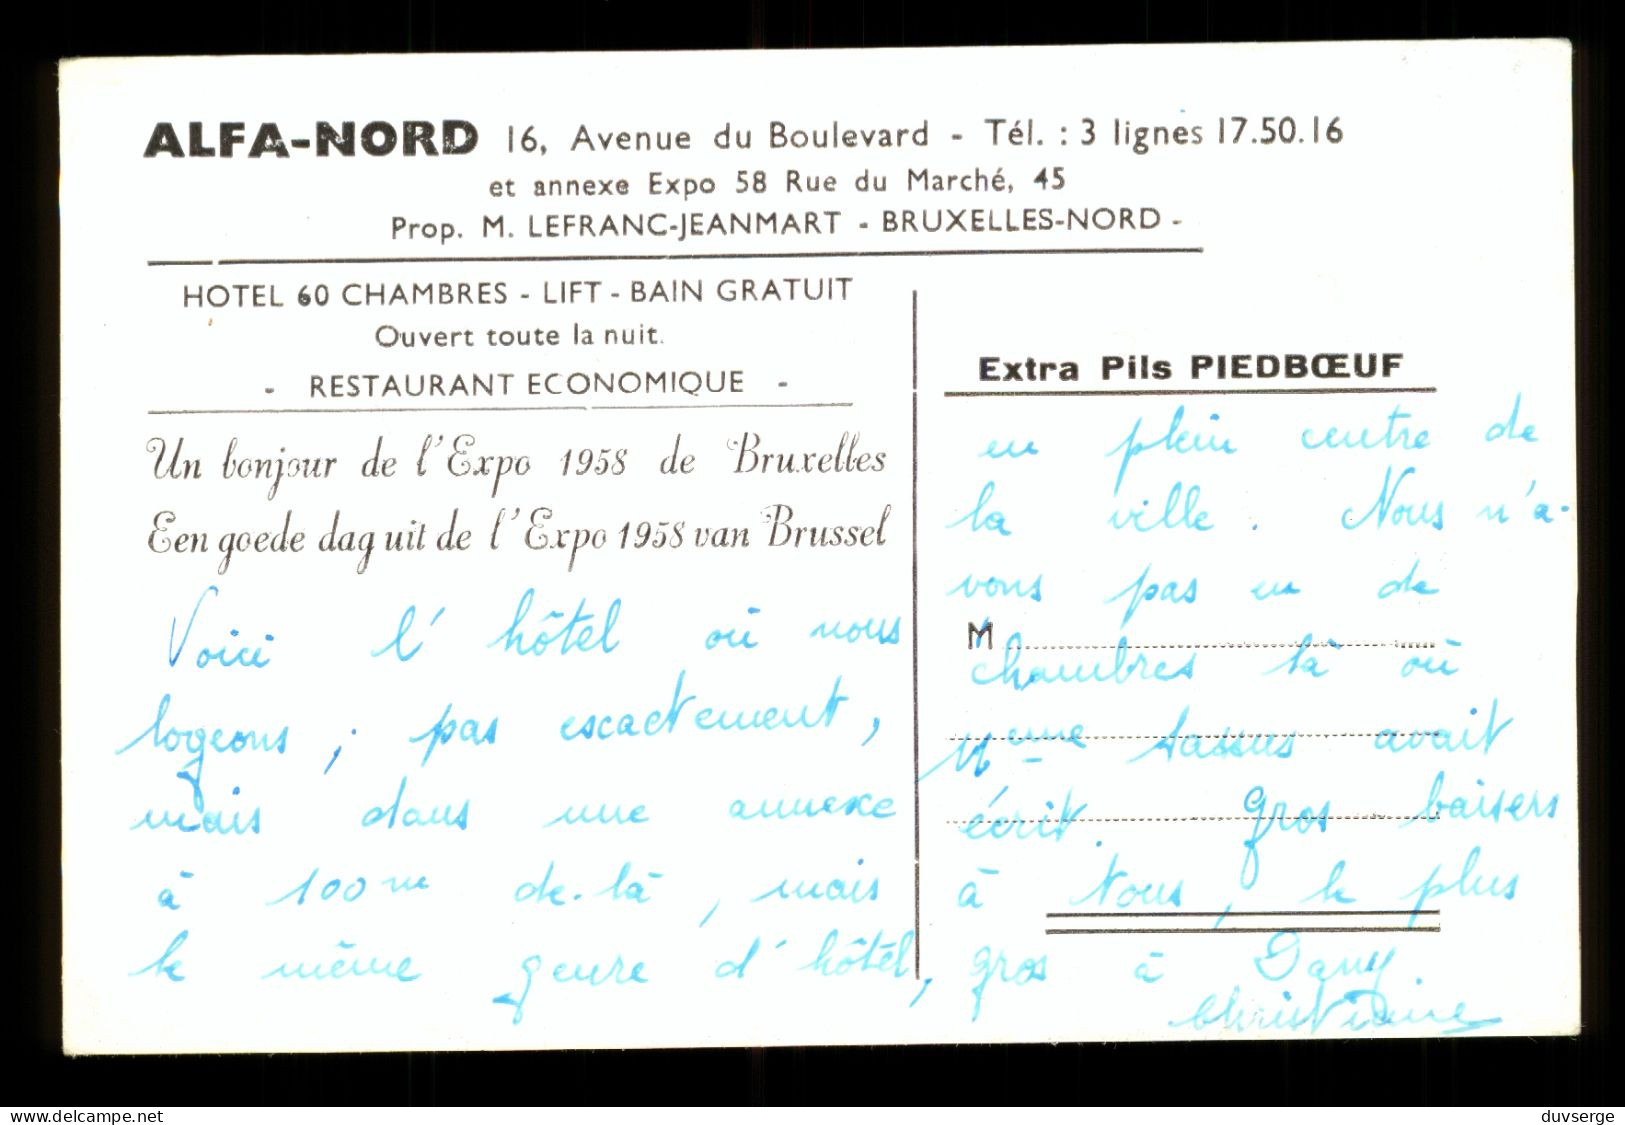 ALFA-NORD 16, Avenue du Boulevard - Tél. : 3 lignes 17.50.16
et annexe Expo 58 Rue du Marché, 45
Prop. M. LEFRANC-JEANMART - BRUXELLES-NORD -
HOTEL 60 CHAMBRES - LIFT - BAIN GRATUIT
Ouvert toute la nuit.
- RESTAURANT ECONOMIQUE -
Un bonjour de l'Expo 1958 de Bruxelles
Een goede dag uit de l'Expo 1958 van Brussel
Voici l'hôtel où nous
logeons ; pas escactement,
mais dans une annexe
à 100 m de-là, mais
le même genre d'hôtel,
Extra Pils PIEDBŒUF
en plein centre de
la ville. Nous n'a-
vons pas eu de
M
chambres là où
Mme avait
écrit. Gros baisers
à tous, le plus
gros à Dany.
Christiane
www.delcampe.net
duvserge